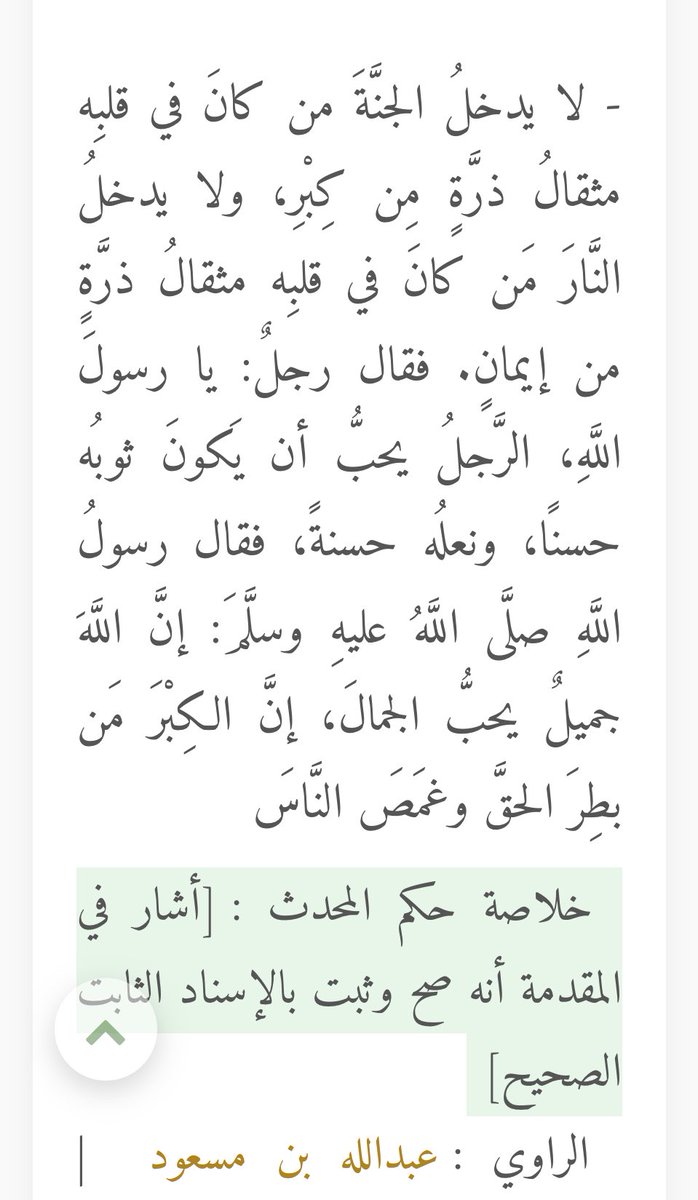 - لا يدخلُ الجنَّةَ من كانَ في قلبِه
مثقالُ ذرَّةٍ مِن كِبْرِ، ولا يدخلُ
النَّارَ مَن كانَ في قلبِه مثقالُ ذرَّةٍ
من إيمانٍ. فقال رجلٌ: يا رسولَ
اللَّهِ، الرَّجلُ يحبُّ أن يَكونَ ثوبُه
حسنًا، ونعلُه حسنةً، فقال رسولُ
اللَّهِ صلَّى اللَّهُ عليهِ وسلَّمَ: إنَّ اللَّهَ
جميلٌ يحبُّ الجمالَ، إنَّ الكِبْرَ مَن
بطِرَ الحقَّ وغمَصَ النَّاسَ
خلاصة حكم المحدث : [أشار في
المقدمة أنه صح وثبت بالإسناد الثابت
الصحيح]
الراوي : عبدالله بن مسعود |